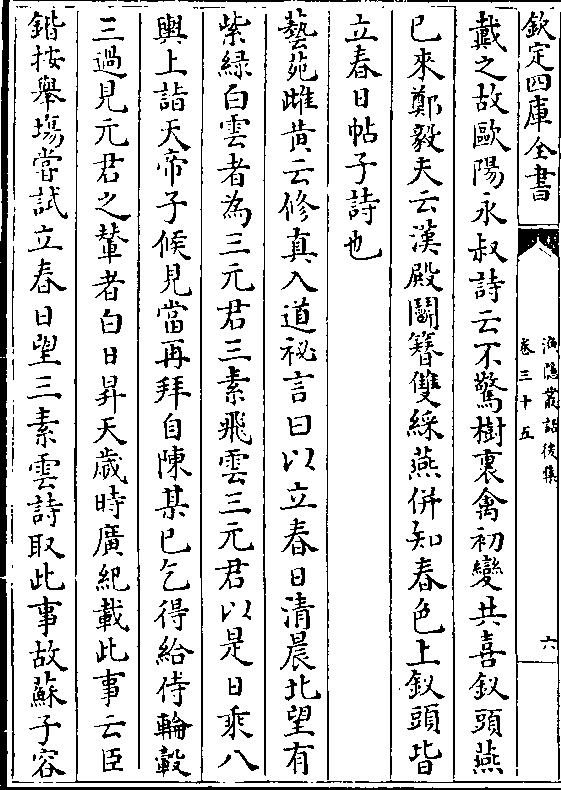 欽定四庫全書
漁隱叢話後集
卷三十五
六
戴之故歐陽永叔詩云不驚樹裏禽初變共喜釵頭燕
已來鄭毅夫云漢殿鬭簪雙綵燕併知春色上釵頭皆
立春日帖子詩也
藝苑雌黄云修真入道祕言曰以立春日清晨北望有
紫緑白雲者為三元君三素飛雲三元君以是日乘八
輿上詣天帝子候見當再拜自陳某已乞得給侍輪轂
三過見元君之輦者白日昇天歲時廣紀載此事云臣
鍇按舉塲嘗試立春日望三素雲詩取此事故蘇子容